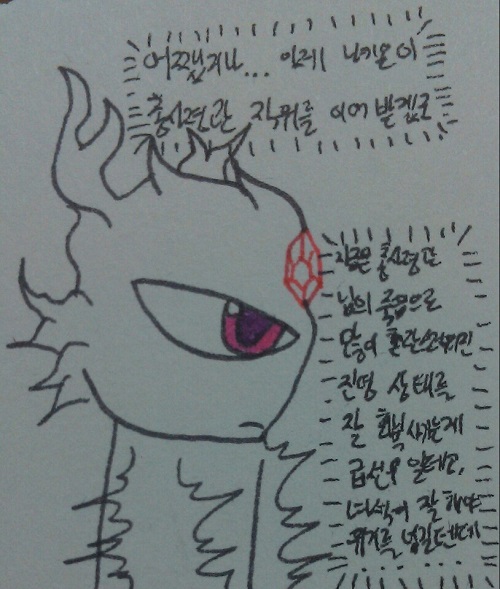 어쨌거나... 이제 녀석이
총사령관 직위를 이어 받겠군
지금은 총사령관
님의 죽음으로
몽땅 혼란스러워진
진영 상태를
잘 회복시키는게
급선무 일테고,
녀석이 잘 해야
위기를 넘길텐데